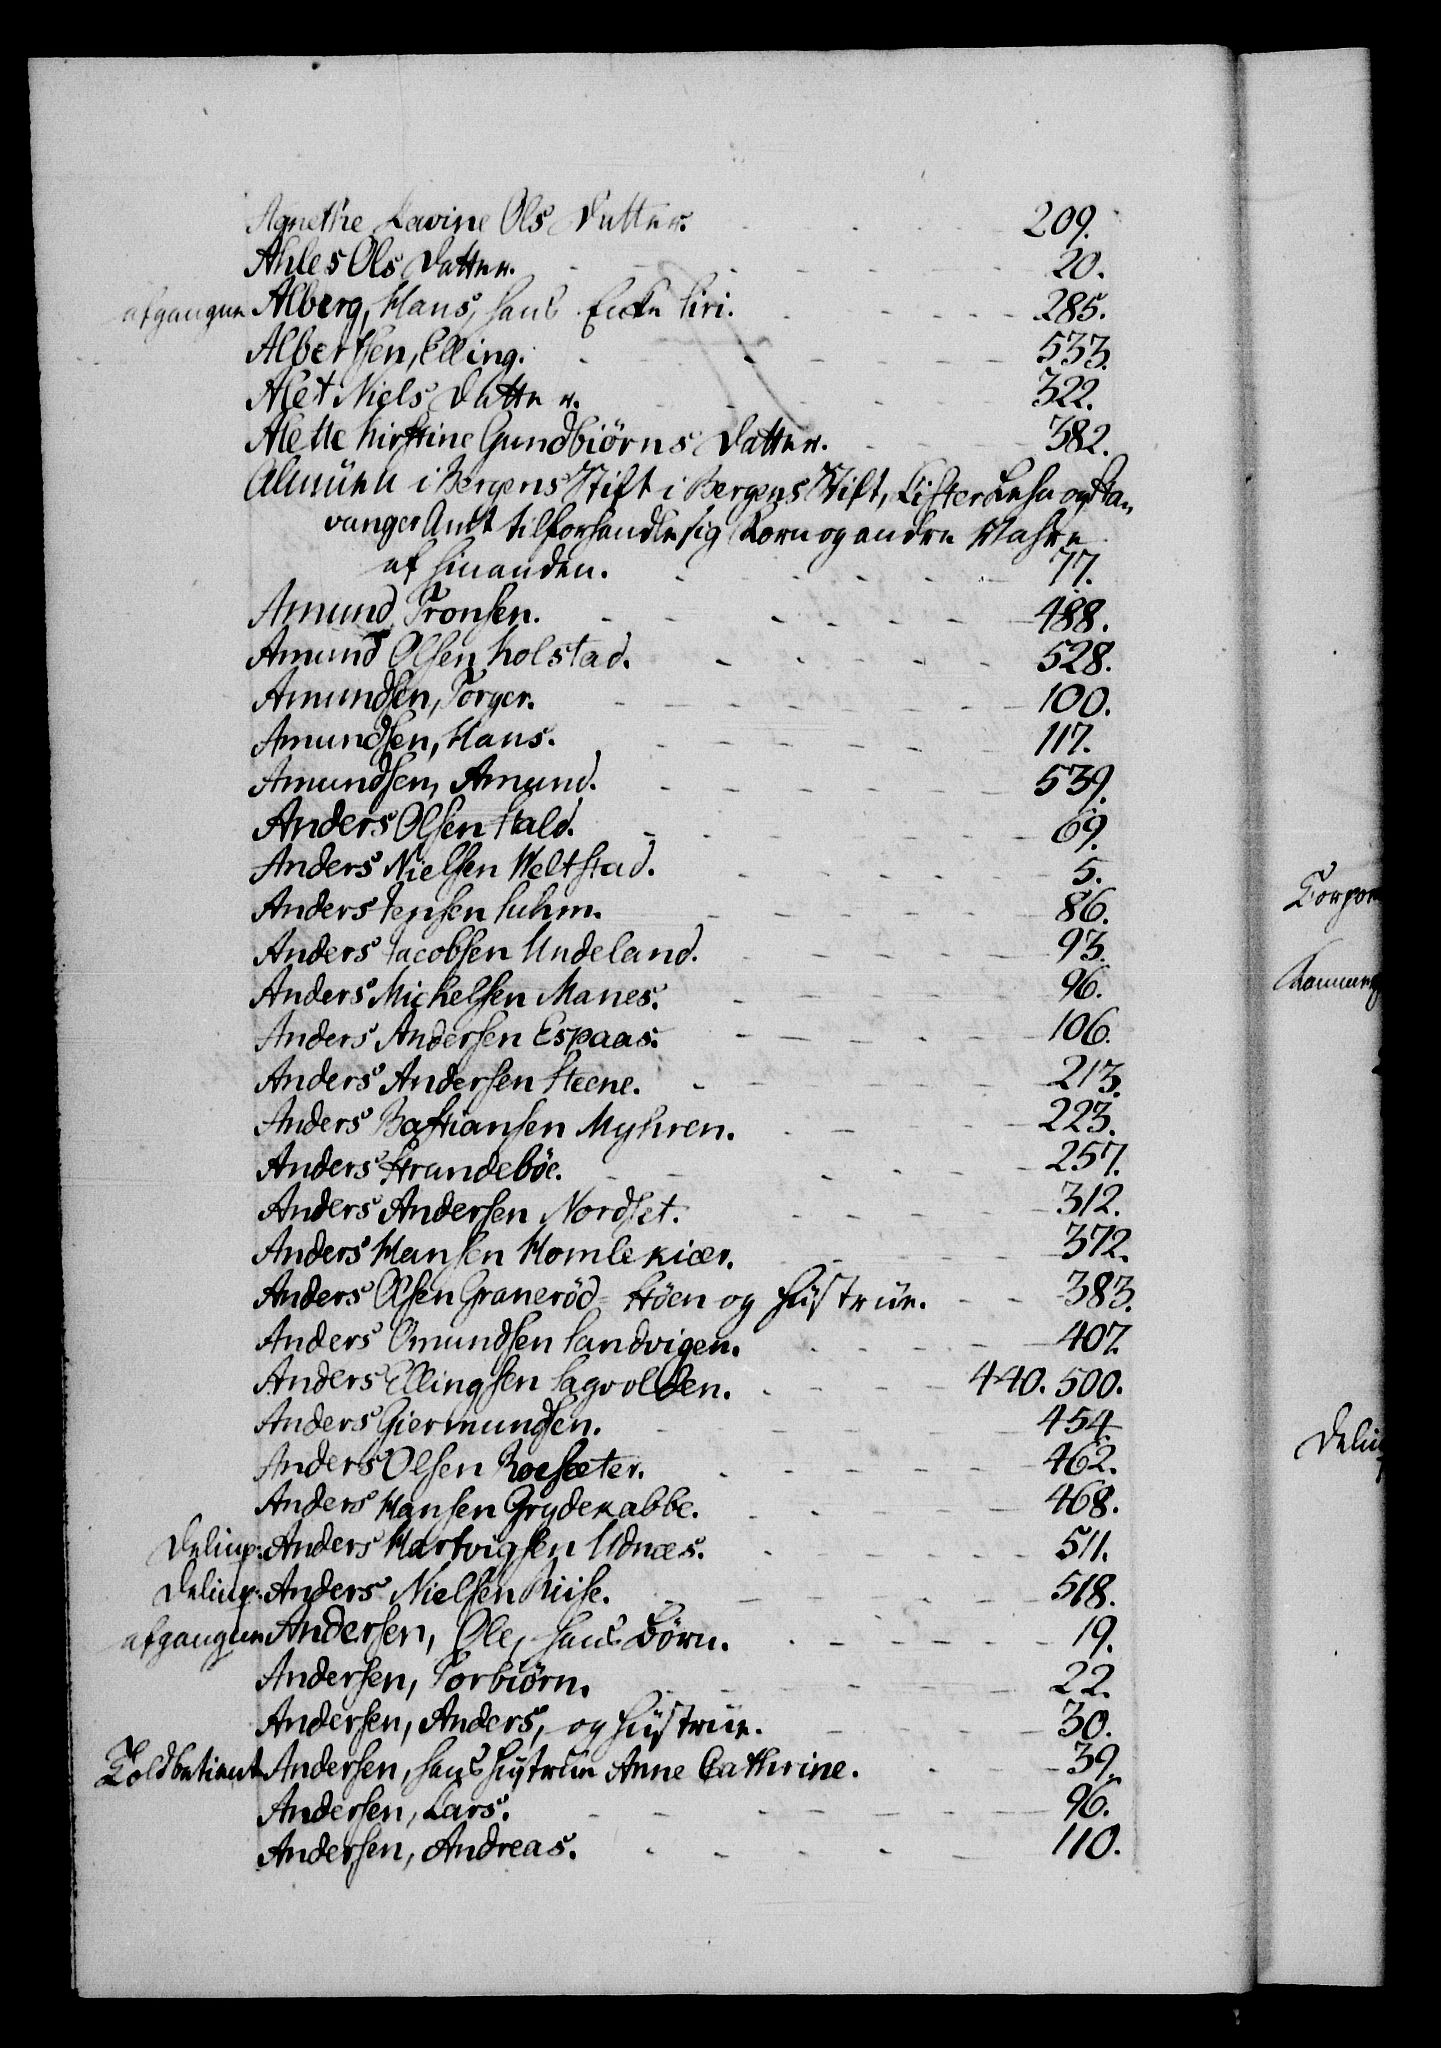 Agnethe Lavine Ols Datter. 209.
Ahles Ols Datter. 20.
afgangne Alberg, Hans, hans Enke Siri. 285.
Albertsen, Elling. 533.
Alet Niels Datter. 322.
Alette Kirstine Gundbiörns Datter. 382.
Almüen i Bergens Stift i Bergens Stift, Lister Lehn og Sta-
vanger Amt tilforhandle sig Korn og andre Wahre
af hinanden. 77.
Amund Tronsen. 488.
Amund Olsen Kolstad. 528.
Amundsen, Torger. 100.
Amundsen, Hans. 117.
Amundsen, Amund. 539.
Anders Olsen Hald. 69.
Anders Nielsen Weltstad. 5.
Anders Jensen Suhm. 86.
Anders Jacobsen Undeland. 93.
Anders Michelsen Manes. 96.
Anders Andersen Espaas. 106.
Anders Andersen Steene. 213.
Anders Bastiansen Myhren. 223.
Anders Strandeböe. 257.
Anders Andersen Nordset. 312.
Anders Hansen Homlekiær. 372.
Anders Olsen Graneröd-Höen og Hüstrüe. 383.
Anders Omundsen Sandvigen. 407.
Anders Ellingsen Sagvolden. 440. 500.
Anders Giermundsen. 454.
Anders Olsen Roesæter. 462.
Anders Hansen Grydekabbe. 468.
Delinq: Anders Hartvigsen Udnæs. 511.
Delinq: Anders Nielsen Riise. 518.
afgangne Andersen, Ole, hans Börn. 19.
Andersen, Torbiörn. 22.
Andersen, Anders, og Hüstrüe. 30.
Toldbetient Andersen, hans Hüstrüe Anne Cathrine. 39.
Andersen, Lars. 96.
Andersen, Andreas. 110.